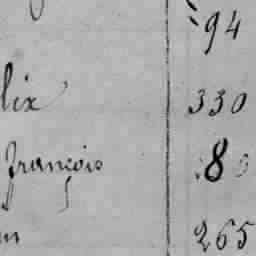 94
lix 330
françois 80
265